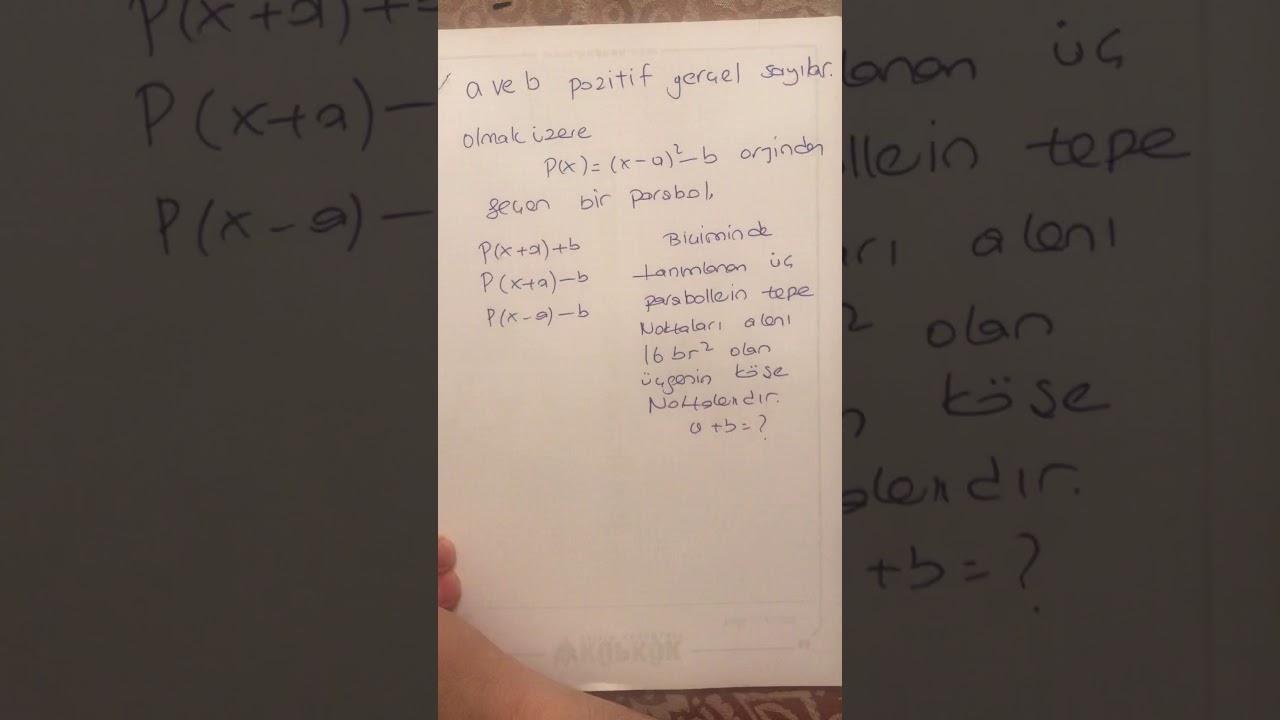 a ve b pozitif gerçel sayılar.
olmak üzere
P(x) = (x-a)²-b orjinden
geçen bir parabol,
P(x+a)+b Biçiminde
P(x+a)-b tanımlanan üç
P(x-a)-b parabollein tepe
Noktaları alanı
16 br² olan
üçgenin köşe
Noktalarıdır.
a+b=?